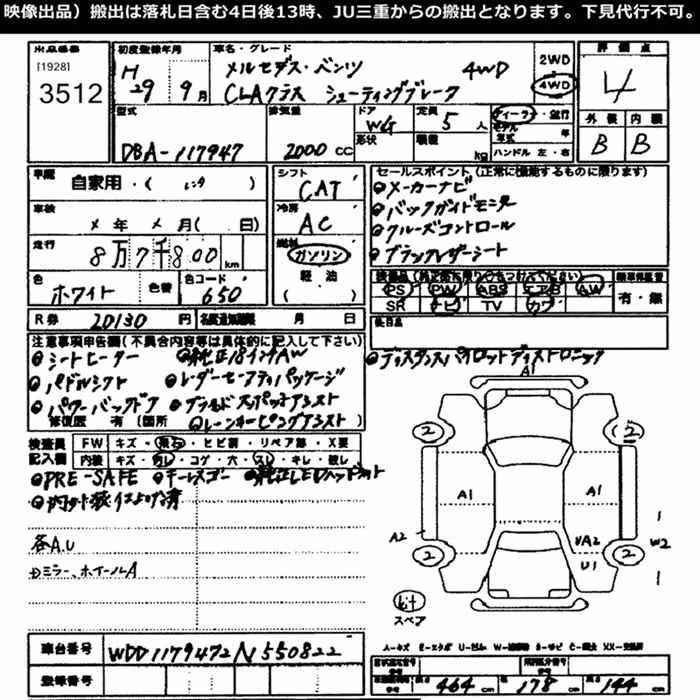 映像出品）搬出は落札日含む4日後13時、JU三重からの搬出となります。下見代行不可。
出品番号
[1928]
3512
初度登録年月
H 29 9月
車名・グレード
メルセデス・ベンツ 4WD
CLAクラス シューティングブレーク
2WD
4WD
評価点
4
外装 内装
B B
型式
DBA-117947
排気量
2000 cc
ドア
形状
WG
定員
5 人
積載
kg
ディーラー・並行
モデル年式 年
ハンドル 左・右
車歴
自家用・(レンタ)
シフト
CAT
車検
メ 年 メ 月( 日)
冷房
AC
走行
8万7千800km
燃料
ガソリン
軽油
( )
色
ホワイト
色替
色コード
650
セールスポイント(正常に機能するものに限ります)
メーカーナビ
バックガイドモニター
クルーズコントロール
ブラックレザーシート
PS PW ABS エアB AW
SR ナビ TV カワ
有・無
R券 20130 円
月 日
後日品
注意事項申告欄(不具合内容等は具体的に記入して下さい)
シートヒーター 純正18インチAW
パドルシフト レーダーセーフティパッケージ
パワーバックドア ブラインドスポットアシスト
修復歴 有(箇所 レーンキーピングアシスト
ディスタンスパイロットディストロニック
検査員記入欄
FW キズ・飛石・ヒビ割・リペア跡・X要
内装 キズ・ヨゴレ・コゲ・穴・スレ・キレ・破レ
PRE-SAFE キーレスゴー 純正LEDヘッドライト
各A.U
ドミラー、ホイールA
A1
2 2
A1 A1
A2 WA2 W2
U1
2 2
A1
スペア
車台番号 WDD1179472N550822
登録番号
464 cm 178 cm 144 cm